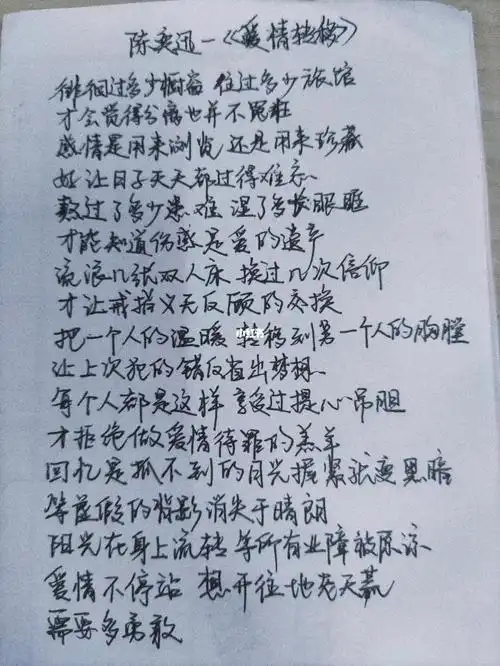 陈奕迅—《爱情转移》
徘徊过多少橱窗 住过多少旅馆
才会觉得分离也并不冤枉
感情是用来浏览 还是用来珍藏
好让日子天天都过得难忘
熬过了多少患难 湿了多少眼眶
才能知道伤感是爱的遗产
流浪几张双人床 换过几次信仰
才让戒指义无反顾的交换
把一个人的温暖 转移到另一个人的胸膛
让上次犯的错反省出梦想
每个人都是这样 享受过提心吊胆
才拒绝做爱情待罪的羔羊
回忆是抓不到的月光握紧就变黑暗
等虚假的背影消失于晴朗
阳光在身上流转 等所有业障被原谅
爱情不停站 想开往地老天荒
需要多勇敢
小红书